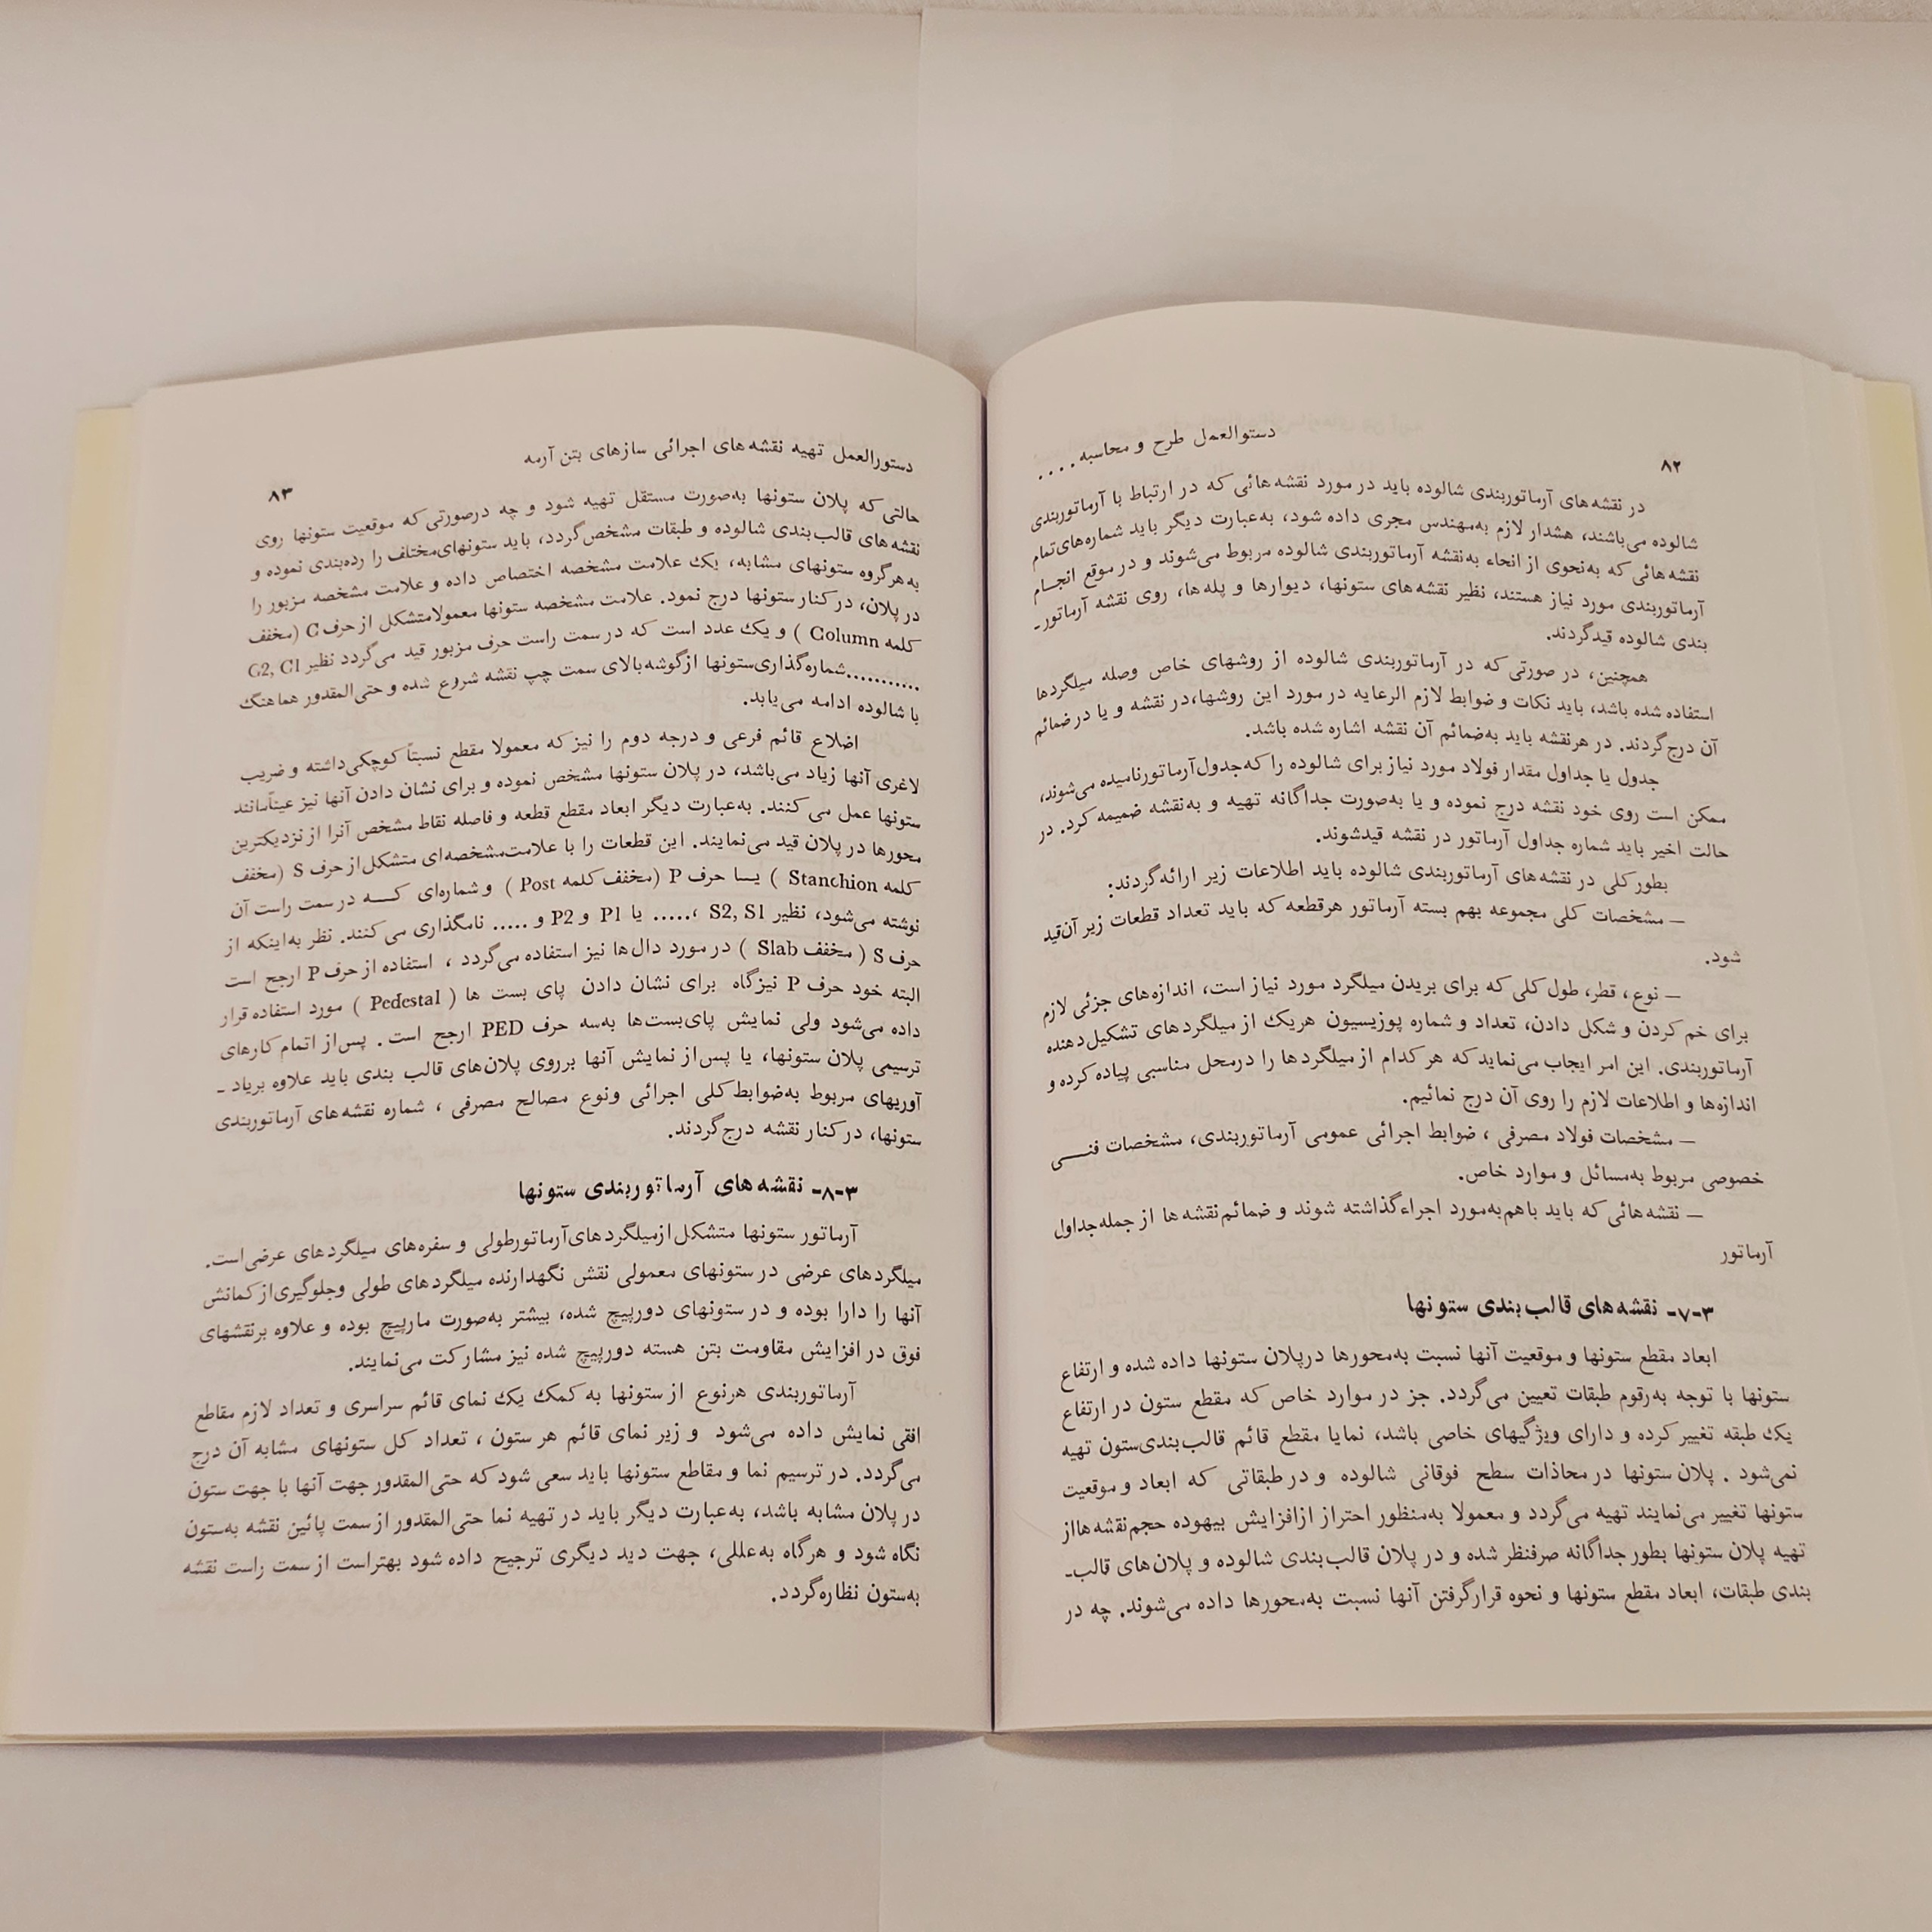 دستوالعمل طرح و محاسبه ....
۸۲
در نقشه‌های آرماتوربندی شالوده باید در مورد نقشه‌هائی که در ارتباط با آرماتوربندی
شالوده می‌باشند، هشدار لازم به‌مهندس مجری داده شود، به‌عبارت دیگر باید شماره‌های‌تمام
نقشه‌هائی که به‌نحوی از انحاء به‌نقشه آرماتوربندی شالوده مربوط می‌شوند و در موقع انجام
آرماتوربندی مورد نیاز هستند، نظیر نقشه‌های ستونها، دیوارها و پله‌ها، روی نقشه آرماتور-
بندی شالوده قیدگردند.
همچنین، در صورتی که در آرماتوربندی شالوده از روشهای خاص وصله میلگردها
استفاده شده باشد، باید نکات و ضوابط لازم الرعایه در مورد این روشها،در نقشه و یا در ضمائم
آن درج‌گردند. در هرنقشه باید به‌ضمائم آن نقشه اشاره شده باشد.
جدول یا جداول مقدار فولاد مورد نیاز برای شالوده را که‌جدول‌آرماتورنامیده می‌شوند،
ممکن است روی خود نقشه درج نموده و یا به‌صورت جداگانه تهیه و به‌نقشه ضمیمه کرد. در
حالت اخیر باید شماره جداول آرماتور در نقشه قیدشوند.
بطورکلی در نقشه‌های آرماتوربندی شالوده باید اطلاعات زیر ارائه‌گردند:
— مشخصات کلی مجموعه بهم بسته آرماتور هرقطعه که باید تعداد قطعات زیر آن‌قید
شود.
— نوع، قطر، طول کلی که برای بریدن میلگرد مورد نیاز است، اندازه‌های جزئی لازم
برای خم کردن و شکل دادن، تعداد و شماره پوزیسیون هریک از میلگردهای تشکیل‌دهنده
آرماتوربندی. این امر ایجاب می‌نماید که هر کدام از میلگردها را درمحل مناسبی پیاده‌کرده و
اندازه‌ها و اطلاعات لازم را روی آن درج نمائیم.
— مشخصات فولاد مصرفی ، ضوابط اجرائی عمومی آرماتوربندی، مشخصات فنـــی
خصوصی مربوط به‌مسائل و موارد خاص.
— نقشه‌هائی که باید باهم‌به‌مورد اجراءگذاشته شوند و ضمائم‌نقشه‌ها از جمله‌جداول
آرماتور
۳-۷- نقشه‌های قالب‌بندی ستونها
ابعاد مقطع ستونها و موقعیت آنها نسبت به‌محورها درپلان ستونها داده شده و ارتفاع
ستونها با توجه به‌رقوم طبقات تعیین می‌گردد. جز در موارد خاص که مقطع ستون در ارتفاع
یک طبقه تغییر کرده و دارای ویژگیهای خاصی باشد، نمایا مقطع قائم قالب‌بندی‌ستون تهیه
نمی‌شود . پلان ستونها در محاذات سطح فوقانی شالوده و در طبقاتی که ابعاد و موقعیت
ستونها تغییر می‌نمایند تهیه می‌گردد و معمولا به‌منظور احتراز ازافزایش بیهوده حجم‌نقشه‌هااز
تهیه پلان ستونها بطور جداگانه صرفنظر شده و در پلان قالب‌بندی شالوده و پلان‌های قالب-
بندی طبقات، ابعاد مقطع ستونها و نحوه قرارگرفتن آنها نسبت به‌محورها داده می‌شوند. چه در
دستورالعمل تهیه نقشه‌های اجرائی سازهای بتن آرمه
۸۳
حالتی که پلان ستونها به‌صورت مستقل تهیه شود و چه درصورتی‌که موقعیت ستونها روی
نقشه‌های قالب‌بندی شالوده و طبقات مشخص‌گردد، باید ستونهای‌مختلف را رده‌بندی نموده و
به‌هرگروه ستونهای مشابه، یک علامت مشخصه اختصاص داده و علامت مشخصه مزبور را
در پلان، در کنار ستونها درج نمود. علامت مشخصه ستونها معمولامتشکل از حرف C (مخفف
کلمه Column ) و یک عدد است که در سمت راست حرف مزبور قید می‌گردد نظیر C2, C1
...........شماره‌گذاری‌ستونها ازگوشه‌بالای سمت چپ نقشه شروع شده و حتی‌المقدور هماهنگ
با شالوده ادامه می‌یابد.
اضلاع قائم فرعی و درجه دوم را نیز که معمولا مقطع نسبتاً کوچکی‌داشته و ضریب
لاغری آنها زیاد می‌باشد، در پلان ستونها مشخص نموده و برای نشان دادن آنها نیز عیناًمانند
ستونها عمل می‌کنند. به‌عبارت دیگر ابعاد مقطع قطعه و فاصله نقاط مشخص آنرا از نزدیکترین
محورها در پلان قید می‌نمایند. این قطعات را با علامت‌مشخصه‌ای متشکل‌از حرف S (مخفف
کلمه Stanchion ) یـا حرف P (مخفف کلمه Post ) و شماره‌ای کــه در سمت راست آن
نوشته می‌شود، نظیر S2, S1 ،..... یا P1 و P2 و ..... نامگذاری می‌کنند. نظر به‌اینکه از
حرف S ( مخفف Slab ) در مورد دال‌ها نیز استفاده می‌گردد ، استفاده از حرف P ارجح است
البته خود حرف P نیزگاه برای نشان دادن پای بست ها ( Pedestal ) مورد استفاده قرار
داده می‌شود ولی نمایش پای‌بست‌ها به‌سه حرف PED ارجح است . پس‌از اتمام کارهای
ترسیمی پلان ستونها، یا پس‌از نمایش آنها برروی پلان‌های قالب بندی باید علاوه بریاد -
آوریهای مربوط به‌ضوابط‌کلی اجرائی ونوع مصالح مصرفی ، شماره نقشه‌های آرماتوربندی
ستونها، در کنار نقشه درج‌گردند.
۳-۸- نقشه‌های آرماتوربندی ستونها
آرماتور ستونها متشکل ازمیلگردهای‌آرماتورطولی و سفره‌های میلگردهای عرضی‌است.
میلگردهای عرضی در ستونهای معمولی نقش نگهدارنده میلگردهای طولی وجلوگیری‌ازکمانش
آنها را دارا بوده و در ستونهای دورپیچ شده، بیشتر به‌صورت مارپیچ بوده و علاوه برنقشهای
فوق در افزایش مقاومت بتن هسته دورپیچ شده نیز مشارکت می‌نمایند.
آرماتوربندی هرنوع از ستونها به کمک یک نمای قائم سراسری و تعداد لازم مقاطع
افقی نمایش داده می‌شود و زیر نمای قائم هر ستون ، تعداد کل ستونهای مشابه آن درج
می‌گردد. در ترسیم نما و مقاطع ستونها باید سعی شود که حتی‌المقدور جهت آنها با جهت ستون
در پلان مشابه باشد، به‌عبارت دیگر باید در تهیه نما حتی‌المقدور از سمت پائین نقشه به‌ستون
نگاه شود و هرگاه به‌عللی، جهت دید دیگری ترجیح داده شود بهتراست از سمت راست نقشه
به‌ستون نظاره‌گردد.